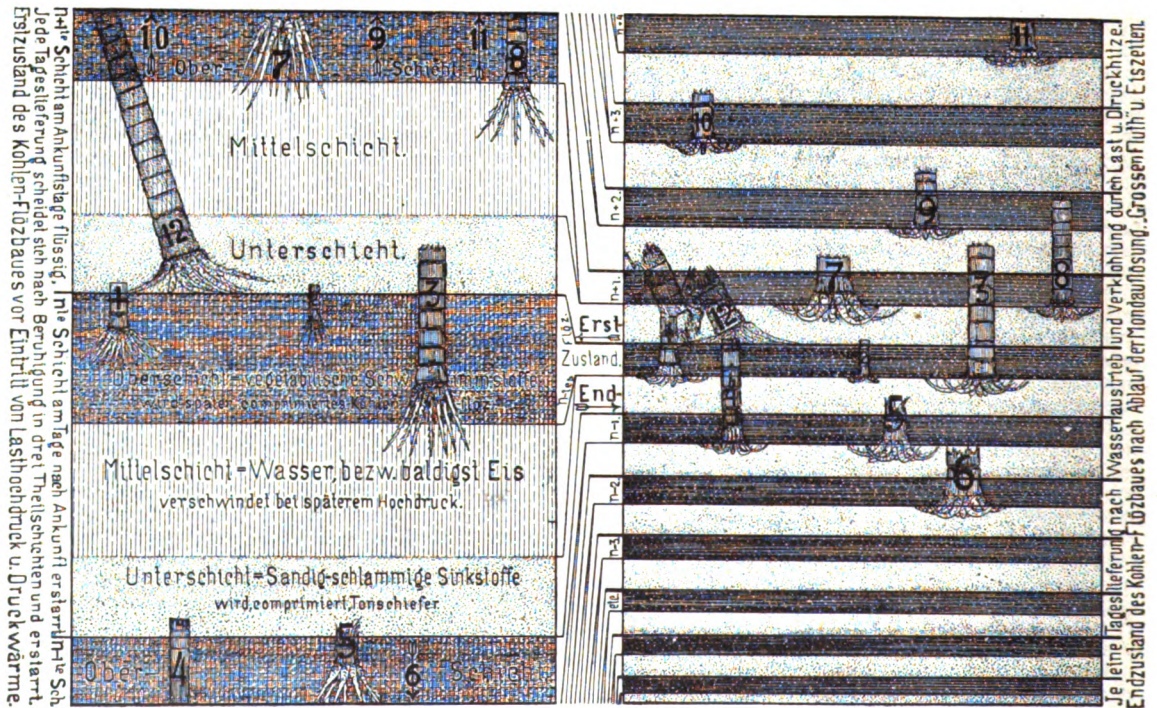 n+1te Schicht am Ankunftstage flüssig, nte Schicht am Tage nach Ankunft erstarrt n-1te Sch
Jede Tageslieferung scheidet sich nach Beruhigung in drei Theilschichten und erstarrt.
Erstzustand des Kohlen-Flözbaues vor Eintritt von Lasthochdruck u. Druckwärme.
10 7 9 11 8
Ober- Schicht
Mittelschicht.
12
Unterschicht.
1 2 3
Oberschicht = vegetabilische Schwimmstoffe
wird später, comprimiertes
Mittelschicht = Wasser, bezw. baldigst Eis
verschwindet bei späterem Hochdruck.
Unterschicht = Sandig-schlammige Sinkstoffe
wird, comprimiert, Tonschiefer
Ober- 4 5 6 Schicht
Flöz-
Erst-
Zustand.
End-
n+4
11
n+3
10
n+2
9
n+1
7 3 8
12
n-1
5
n-2
6
n-3
etc
Je eine Tageslieferung nach Wasseraustrieb und Verkohlung durch Last u. Druckhitze.
Endzustand des Kohlen-Flözbaues nach Ablauf der Mondauflösung, „Grossen Fluth" u. Eiszeiten.